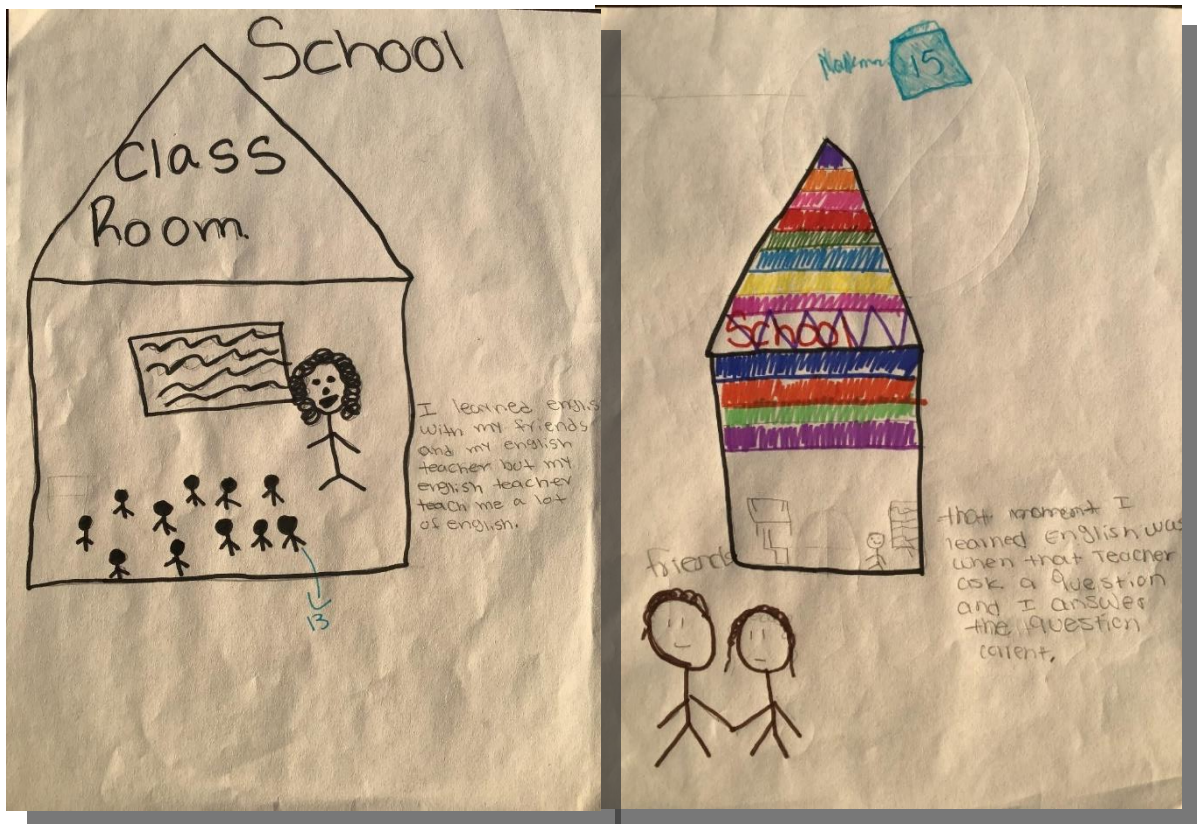 School
Class
Room.
I learned englis
with my friends
and my english
teacher but my
english teacher
teach me a lot
of english.
13
15
School
friends
that moment I
learned English was
when that Teacher
ask a question
and I answer
the question
corrent.